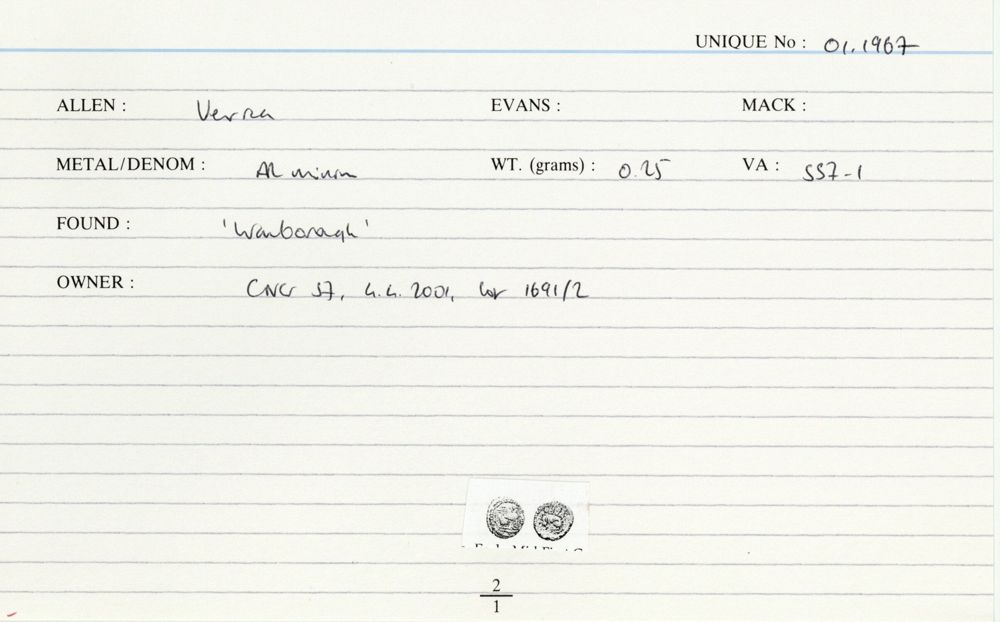 UNIQUE No : 01.1967
ALLEN : Verica EVANS : MACK :
METAL/DENOM : AR minim WT. (grams) : 0.25 VA : 557-1
FOUND : 'Wanborough'
OWNER : CNG 57, 4.4.2001, lot 1691/2
2
1